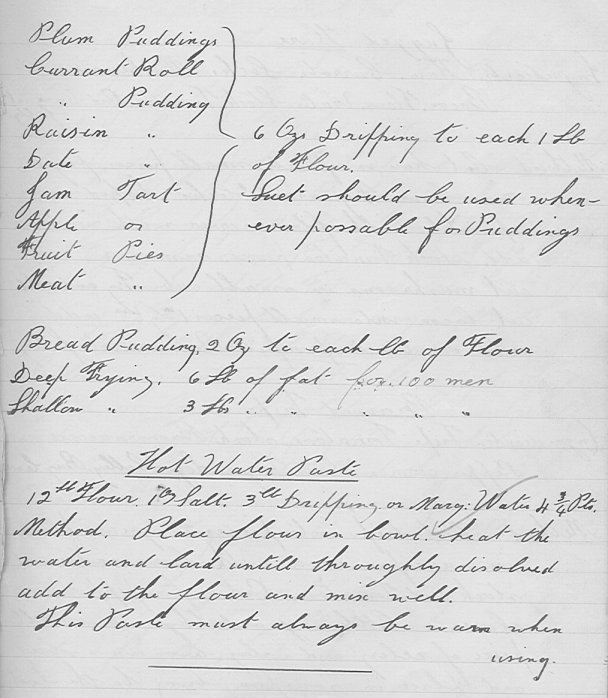 Plum Puddings
Currant Roll
" Pudding
Raisin " 6 Ozs Dripping to each 1 lb
Date " of Flour.
Jam Tart Suet should be used when-
Apple or ever possable for Puddings
Fruit Pies
Meat "
Bread Pudding, 2 Oz to each lb of Flour
Deep Frying. 6 lb of fat for 100 men
Shallow " 3 lbs " " " " "
Hot Water Paste
12 lb Flour. 1 Oz Salt. 3 lb Dripping or Marg: Water 4 3/4 Pts.
Method. Place flour in bowl. heat the
water and lard untill throughly disolved
add to the flour and mix well.
This Paste must always be warm when
using.